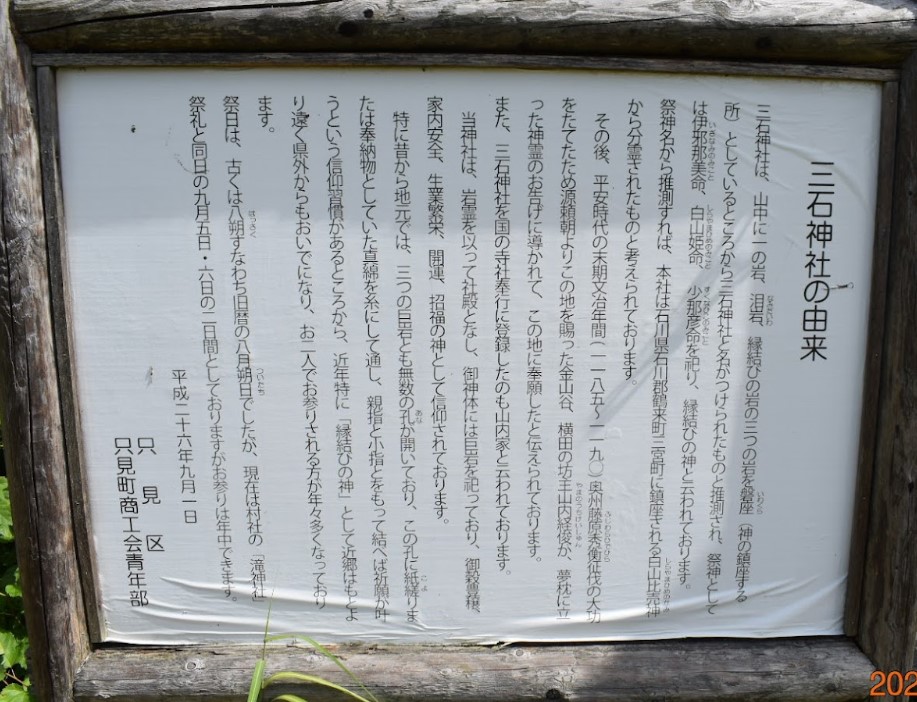 三石神社の由来
三石神社は、山中に一の岩、泪岩、縁結びの岩の三つの岩を磐座（神の鎮座する
所）としているところから三石神社と名がつけられたものと推測され、祭神として
は伊邪那美命、白山姫命、少那彦命を祀り、縁結びの神と云われております。
祭神名から推測すれば、本社は石川県石川郡鶴来町三宮町に鎮座される白山比売神
から分霊されたものと考えられております。
その後、平安時代の末期文治年間（一一八五～一一九〇）奥州藤原秀衡征伐の大功
をたてたため源頼朝よりこの地を賜った金山谷、横田の坊主山内経俊が、夢枕に立
った神霊のお告げに導かれて、この地に奉願したと伝えられております。
また、三石神社を国の寺社奉行に登録したのも山内家と云われております。
当神社は、岩霊を以って社殿となし、御神体には巨岩を祀っており、御穀豊穣、
家内安全、生業繁栄、開運、招福の神として信仰されております。
特に昔から地元では、三つの巨岩とも無数の孔が開いており、この孔に紙縒りま
たは奉納物としていた真綿を糸にして通し、親指と小指とをもって結べば祈願が叶
うという信仰習慣があるところから、近年特に「縁結びの神」として近郷はもとよ
り遠く県外からもおいでになり、お二人でお参りされる方が年々多くなっており
ます。
祭日は、古くは八朔すなわち旧暦の八月朔日でしたが、現在は村社の「滝神社」
祭礼と同日の九月五日・六日の二日間としておりますがお参りは年中できます。
平成二十六年九月一日
只見区
只見町商工会青年部
202